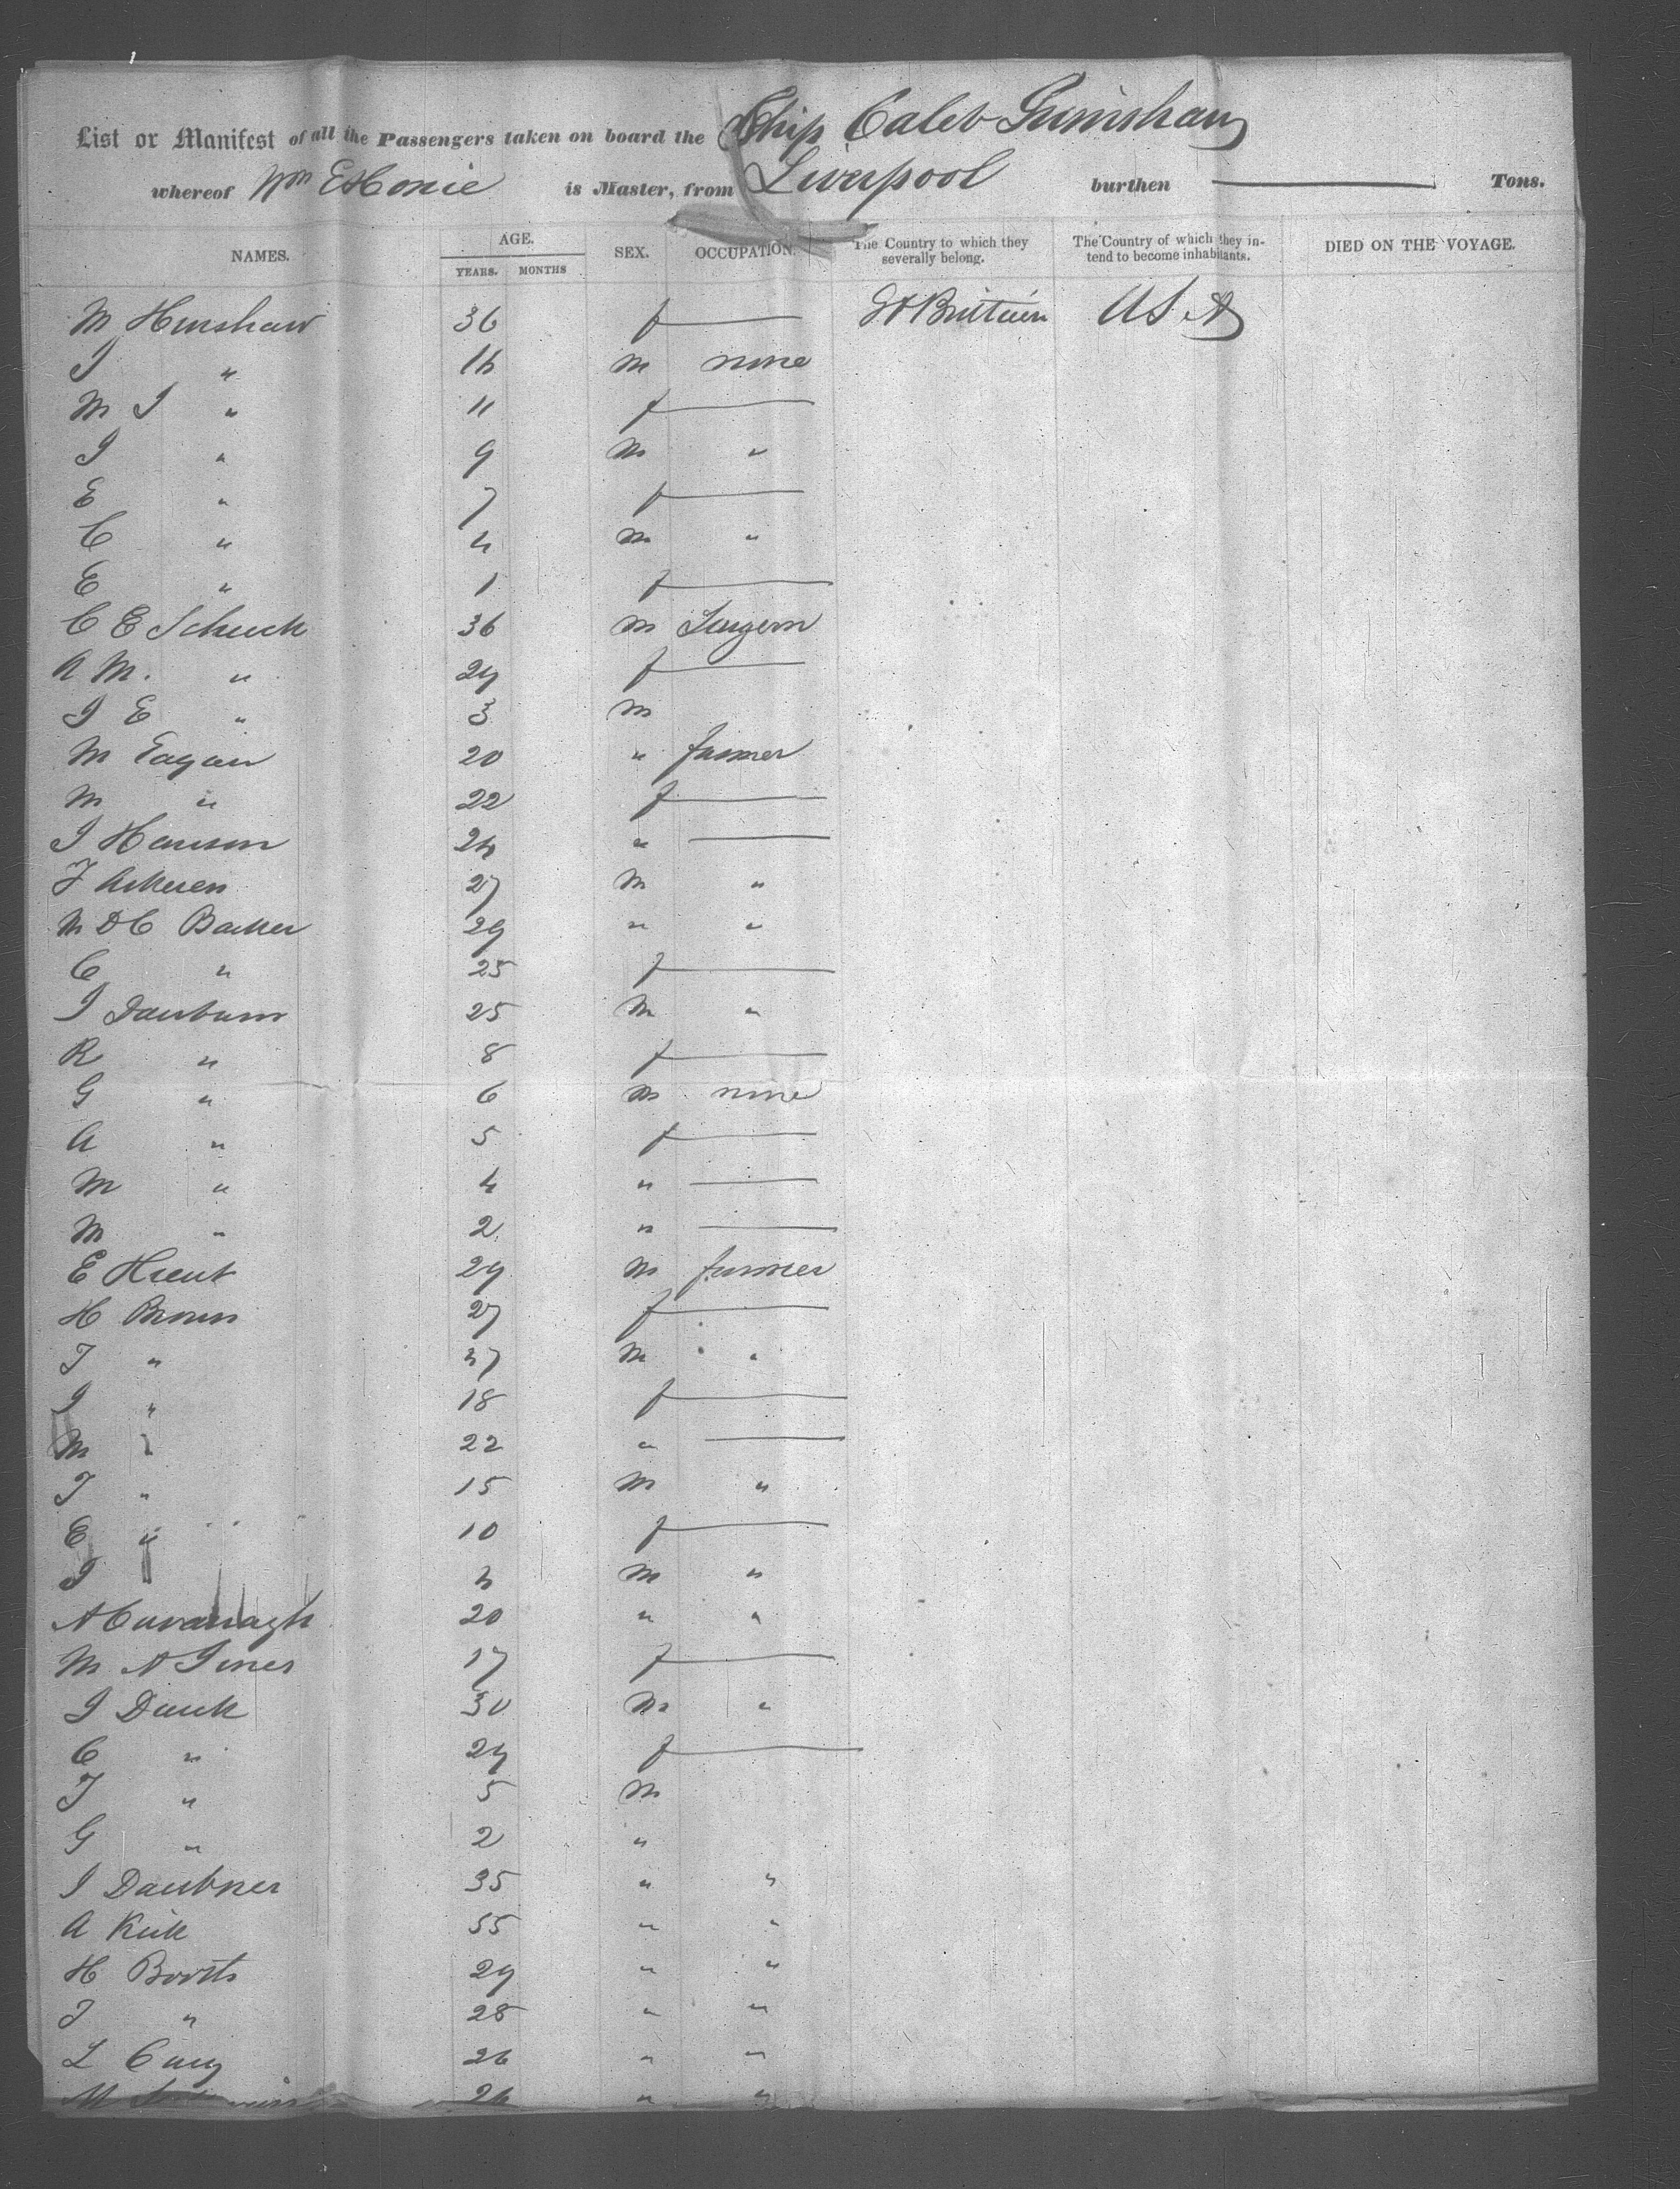 List or Manifest of all the Passengers taken on board the Ship Caleb Grimshaw
whereof Wm E Hoxie is Master, from Liverpool burthen Tons.
NAMES. AGE. YEARS. MONTHS SEX. OCCUPATION. The Country to which they severally belong. The Country of which they intend to become inhabitants. DIED ON THE VOYAGE.
M Henshaw 36 f Gt Brittain U S A
J " 14 m none
M J " 11 f
J " 9 m "
E " 7 f
C " 4 m "
E " 1 f
C E Schuck 36 m Surgeon
A M. " 29 f
J E " 3 m
M Eagan 20 " farmer
M " 22 f
J Hanson 24 "
27 m "
M D C Barker 29 " "
C " 25 f
25 m "
R " 8 f
G " 6 m none
A " 5 f
M " 4 "
M " 2 "
E Hunt 29 m farmer
H Brown 27 f
T " 37 m "
J " 18 f
M " 22 "
T " 15 m "
E " 10 f
J 4 m "
A Cavanagh 20 " "
M A Jones 17 f
J 30 m "
C " 29 f
T " 5 m
G " 2 "
J Daubner 35 " "
A Kirk 55 " "
H Booth 29 " "
J " 28 " "
L 26 " "
M 26 " "